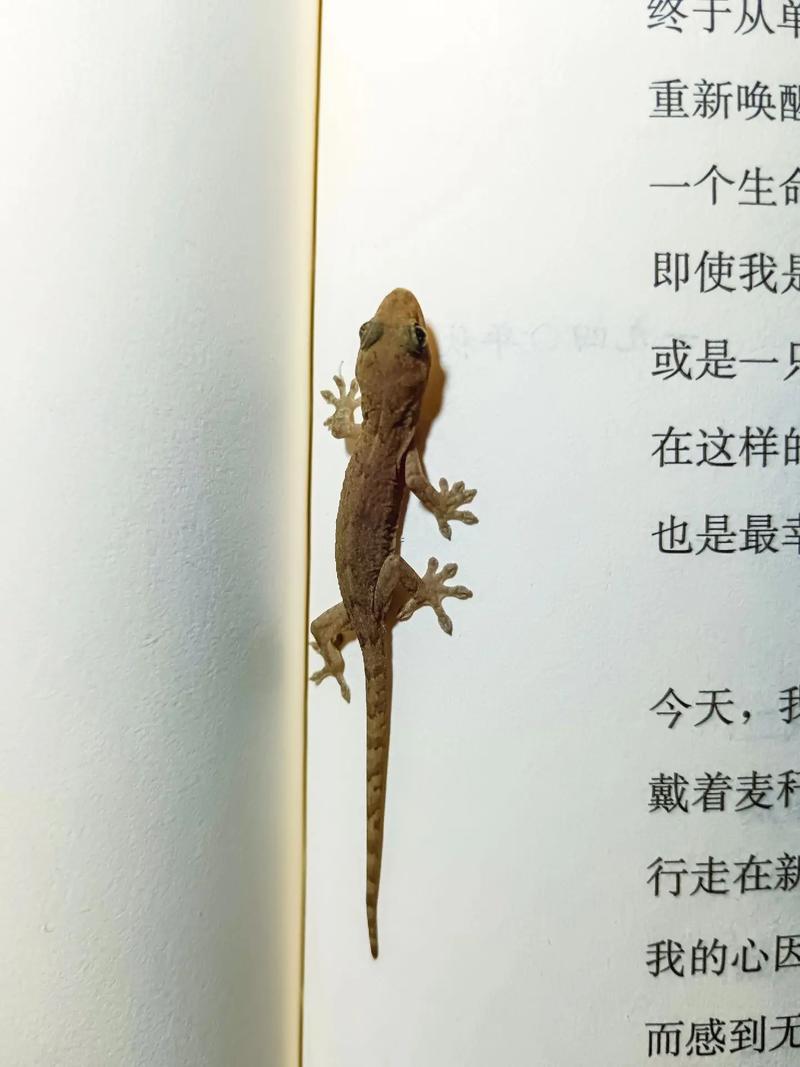 终于从单
重新唤醒
一个生命
即使我是
或是一只
在这样的
也是最幸
今天，我
戴着麦秆
行走在新
我的心因
而感到无
一九四〇年